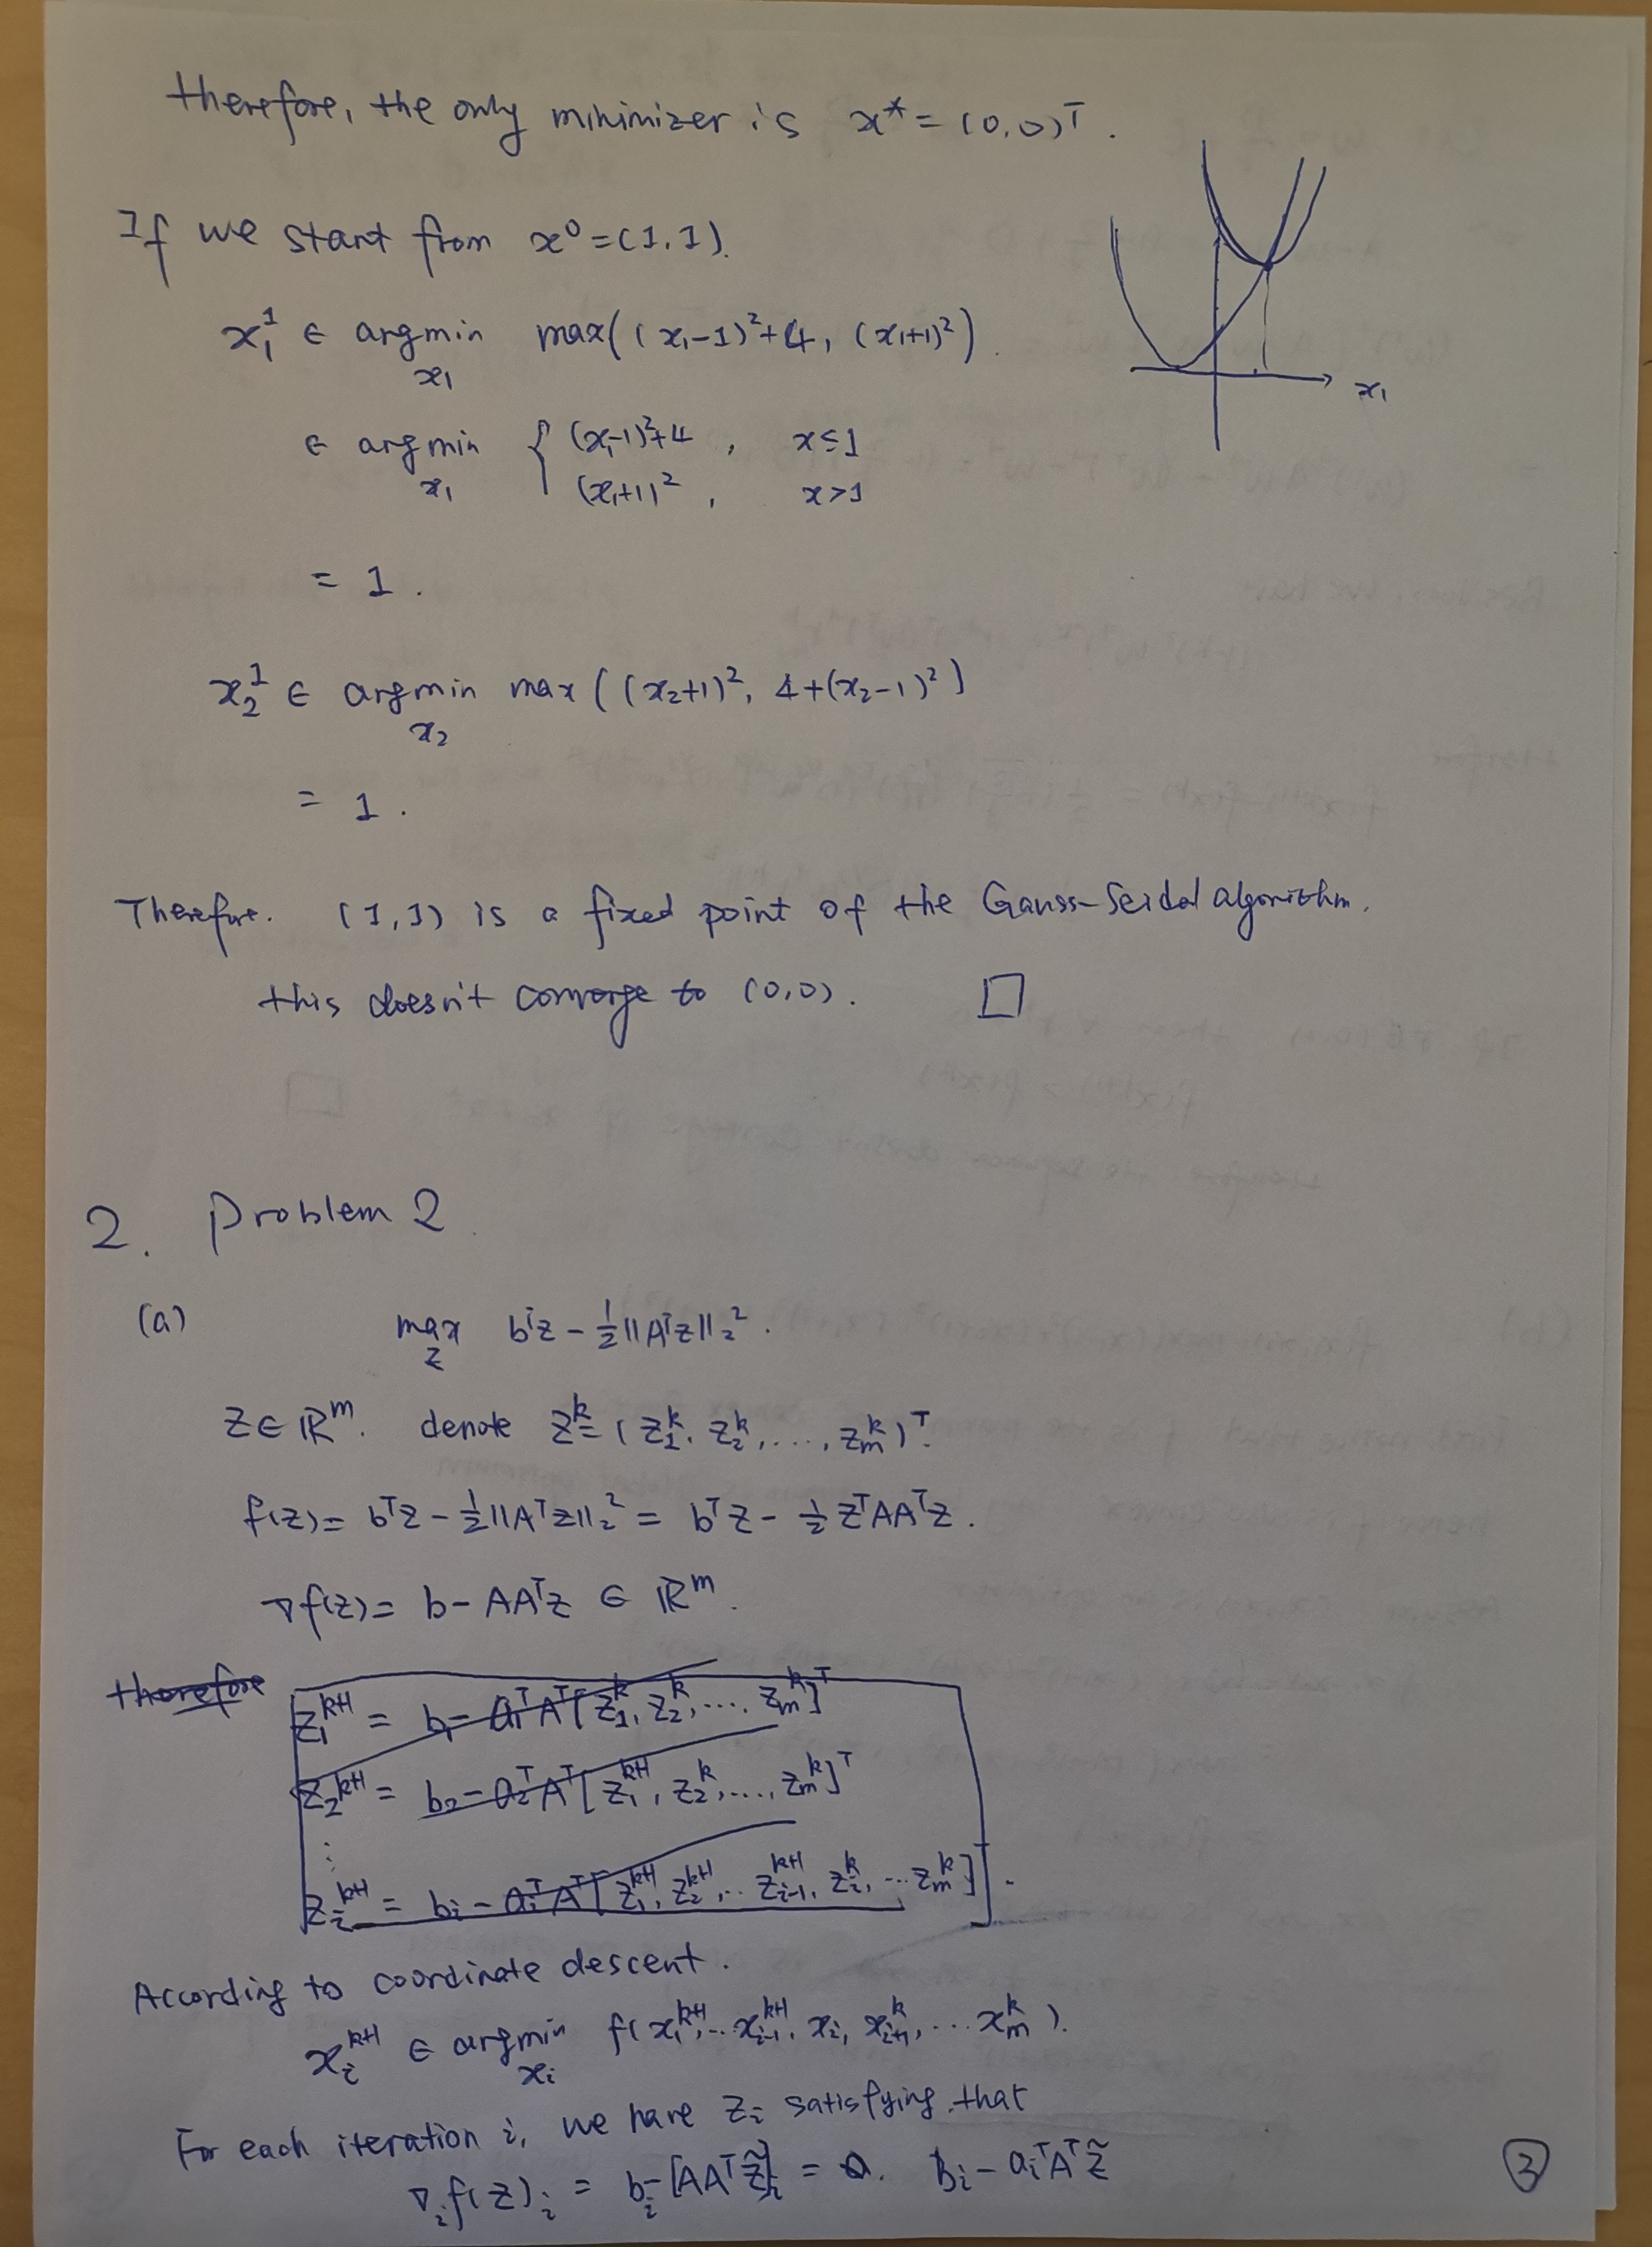 therefore, the only minimizer is x* = (0,0)ᵀ.
If we start from x⁰=(1,1).
x₁¹ ∈ argmin_{x₁} max((x₁-1)²+4, (x₁+1)²).
x₁
∈ argmin_{x₁} { (x₁-1)²+4 , x≤1
(x₁+1)² , x>1
= 1.
x₂¹ ∈ argmin_{x₂} max((x₂+1)², 4+(x₂-1)²)
= 1.
Therefore. (1,1) is a fixed point of the Gauss-Seidal algorithm.
this doesn't converge to (0,0). □
2. Problem 2
(a) max_z bᵀz - ½||Aᵀz||₂².
z∈ℝᵐ. denote zᵏ = (z₁ᵏ, z₂ᵏ, ..., zₘᵏ)ᵀ.
f(z) = bᵀz - ½||Aᵀz||₂² = bᵀz - ½zᵀAAᵀz.
∇f(z) = b - AAᵀz ∈ ℝᵐ.
therefore z₁ᵏ⁺¹ = b₁ - a₁ᵀAᵀ[z₁ᵏ, z₂ᵏ, ..., zₘᵏ]ᵀ
z₂ᵏ⁺¹ = b₂ - a₂ᵀAᵀ[z₁ᵏ⁺¹, z₂ᵏ, ..., zₘᵏ]ᵀ
⋮
zᵢᵏ⁺¹ = bᵢ - aᵢᵀAᵀ[z₁ᵏ⁺¹, z₂ᵏ⁺¹, .. zᵢ₋₁ᵏ⁺¹, zᵢᵏ, ... zₘᵏ]ᵀ.
According to coordinate descent.
xᵢᵏ⁺¹ ∈ argmin_{xᵢ} f(x₁ᵏ⁺¹, .. xᵢ₋₁ᵏ⁺¹, xᵢ, xᵢ₊₁ᵏ, ... xₘᵏ).
For each iteration i, we have zᵢ satisfying that
∇ᵢf(z)ᵢ = bᵢ - [AAᵀz̃]ᵢ = 0. bᵢ - aᵢᵀAᵀz̃
③